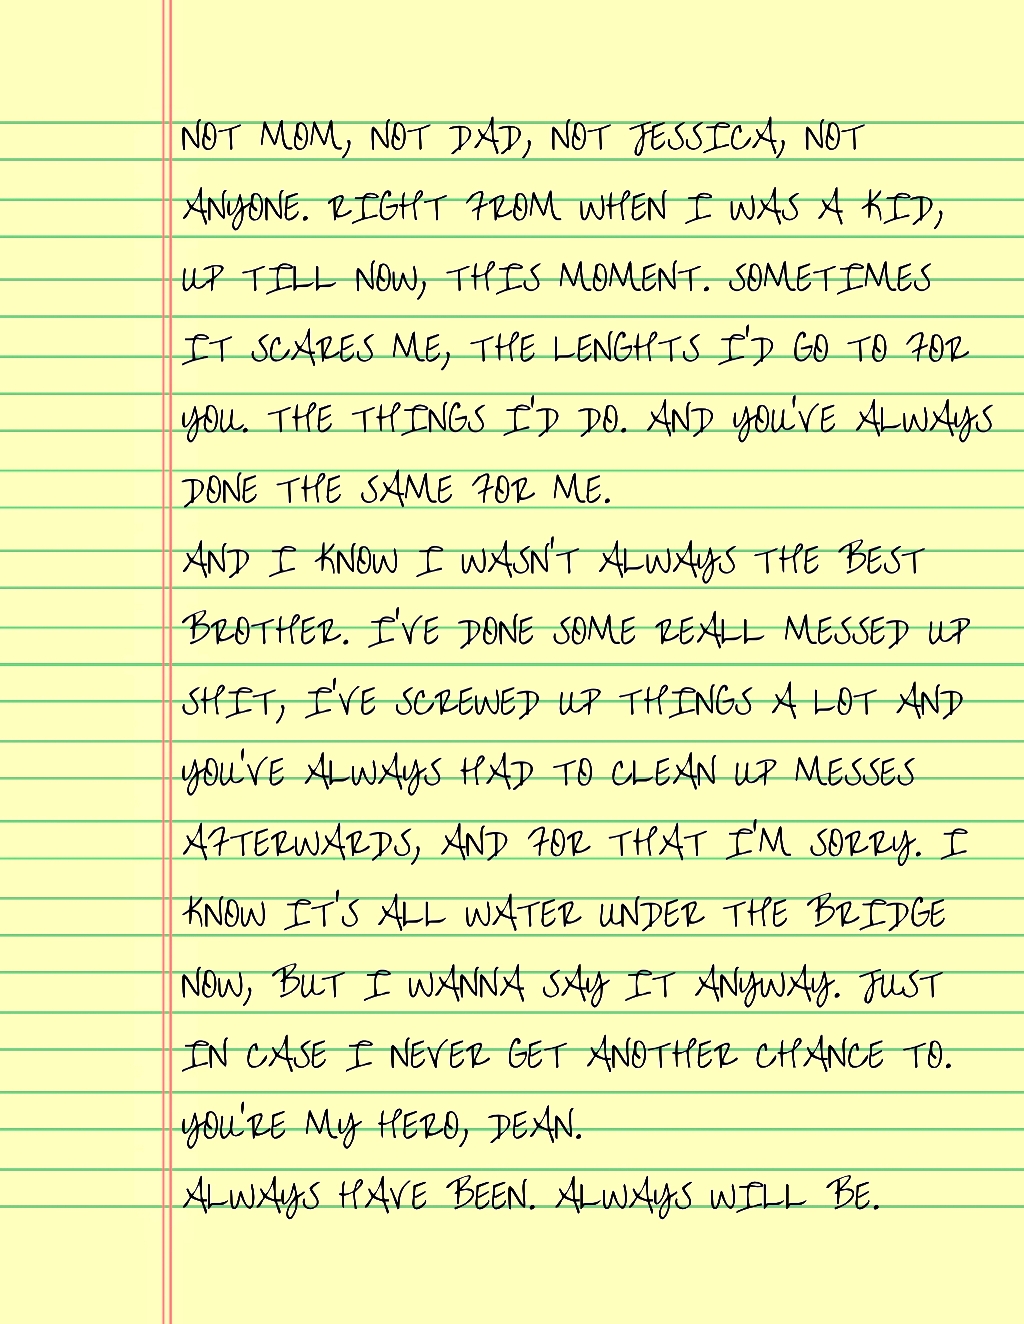 NOT MOM, NOT DAD, NOT JESSICA, NOT
ANYONE. RIGHT FROM WHEN I WAS A KID,
UP TILL NOW, THIS MOMENT. SOMETIMES
IT SCARES ME, THE LENGHTS I'D GO TO FOR
YOU. THE THINGS I'D DO. AND YOU'VE ALWAYS
DONE THE SAME FOR ME.
AND I KNOW I WASN'T ALWAYS THE BEST
BROTHER. I'VE DONE SOME REALL MESSED UP
SHIT, I'VE SCREWED UP THINGS A LOT AND
YOU'VE ALWAYS HAD TO CLEAN UP MESSES
AFTERWARDS, AND FOR THAT I'M SORRY. I
KNOW IT'S ALL WATER UNDER THE BRIDGE
NOW, BUT I WANNA SAY IT ANYWAY. JUST
IN CASE I NEVER GET ANOTHER CHANCE TO.
YOU'RE MY HERO, DEAN.
ALWAYS HAVE BEEN. ALWAYS WILL BE.